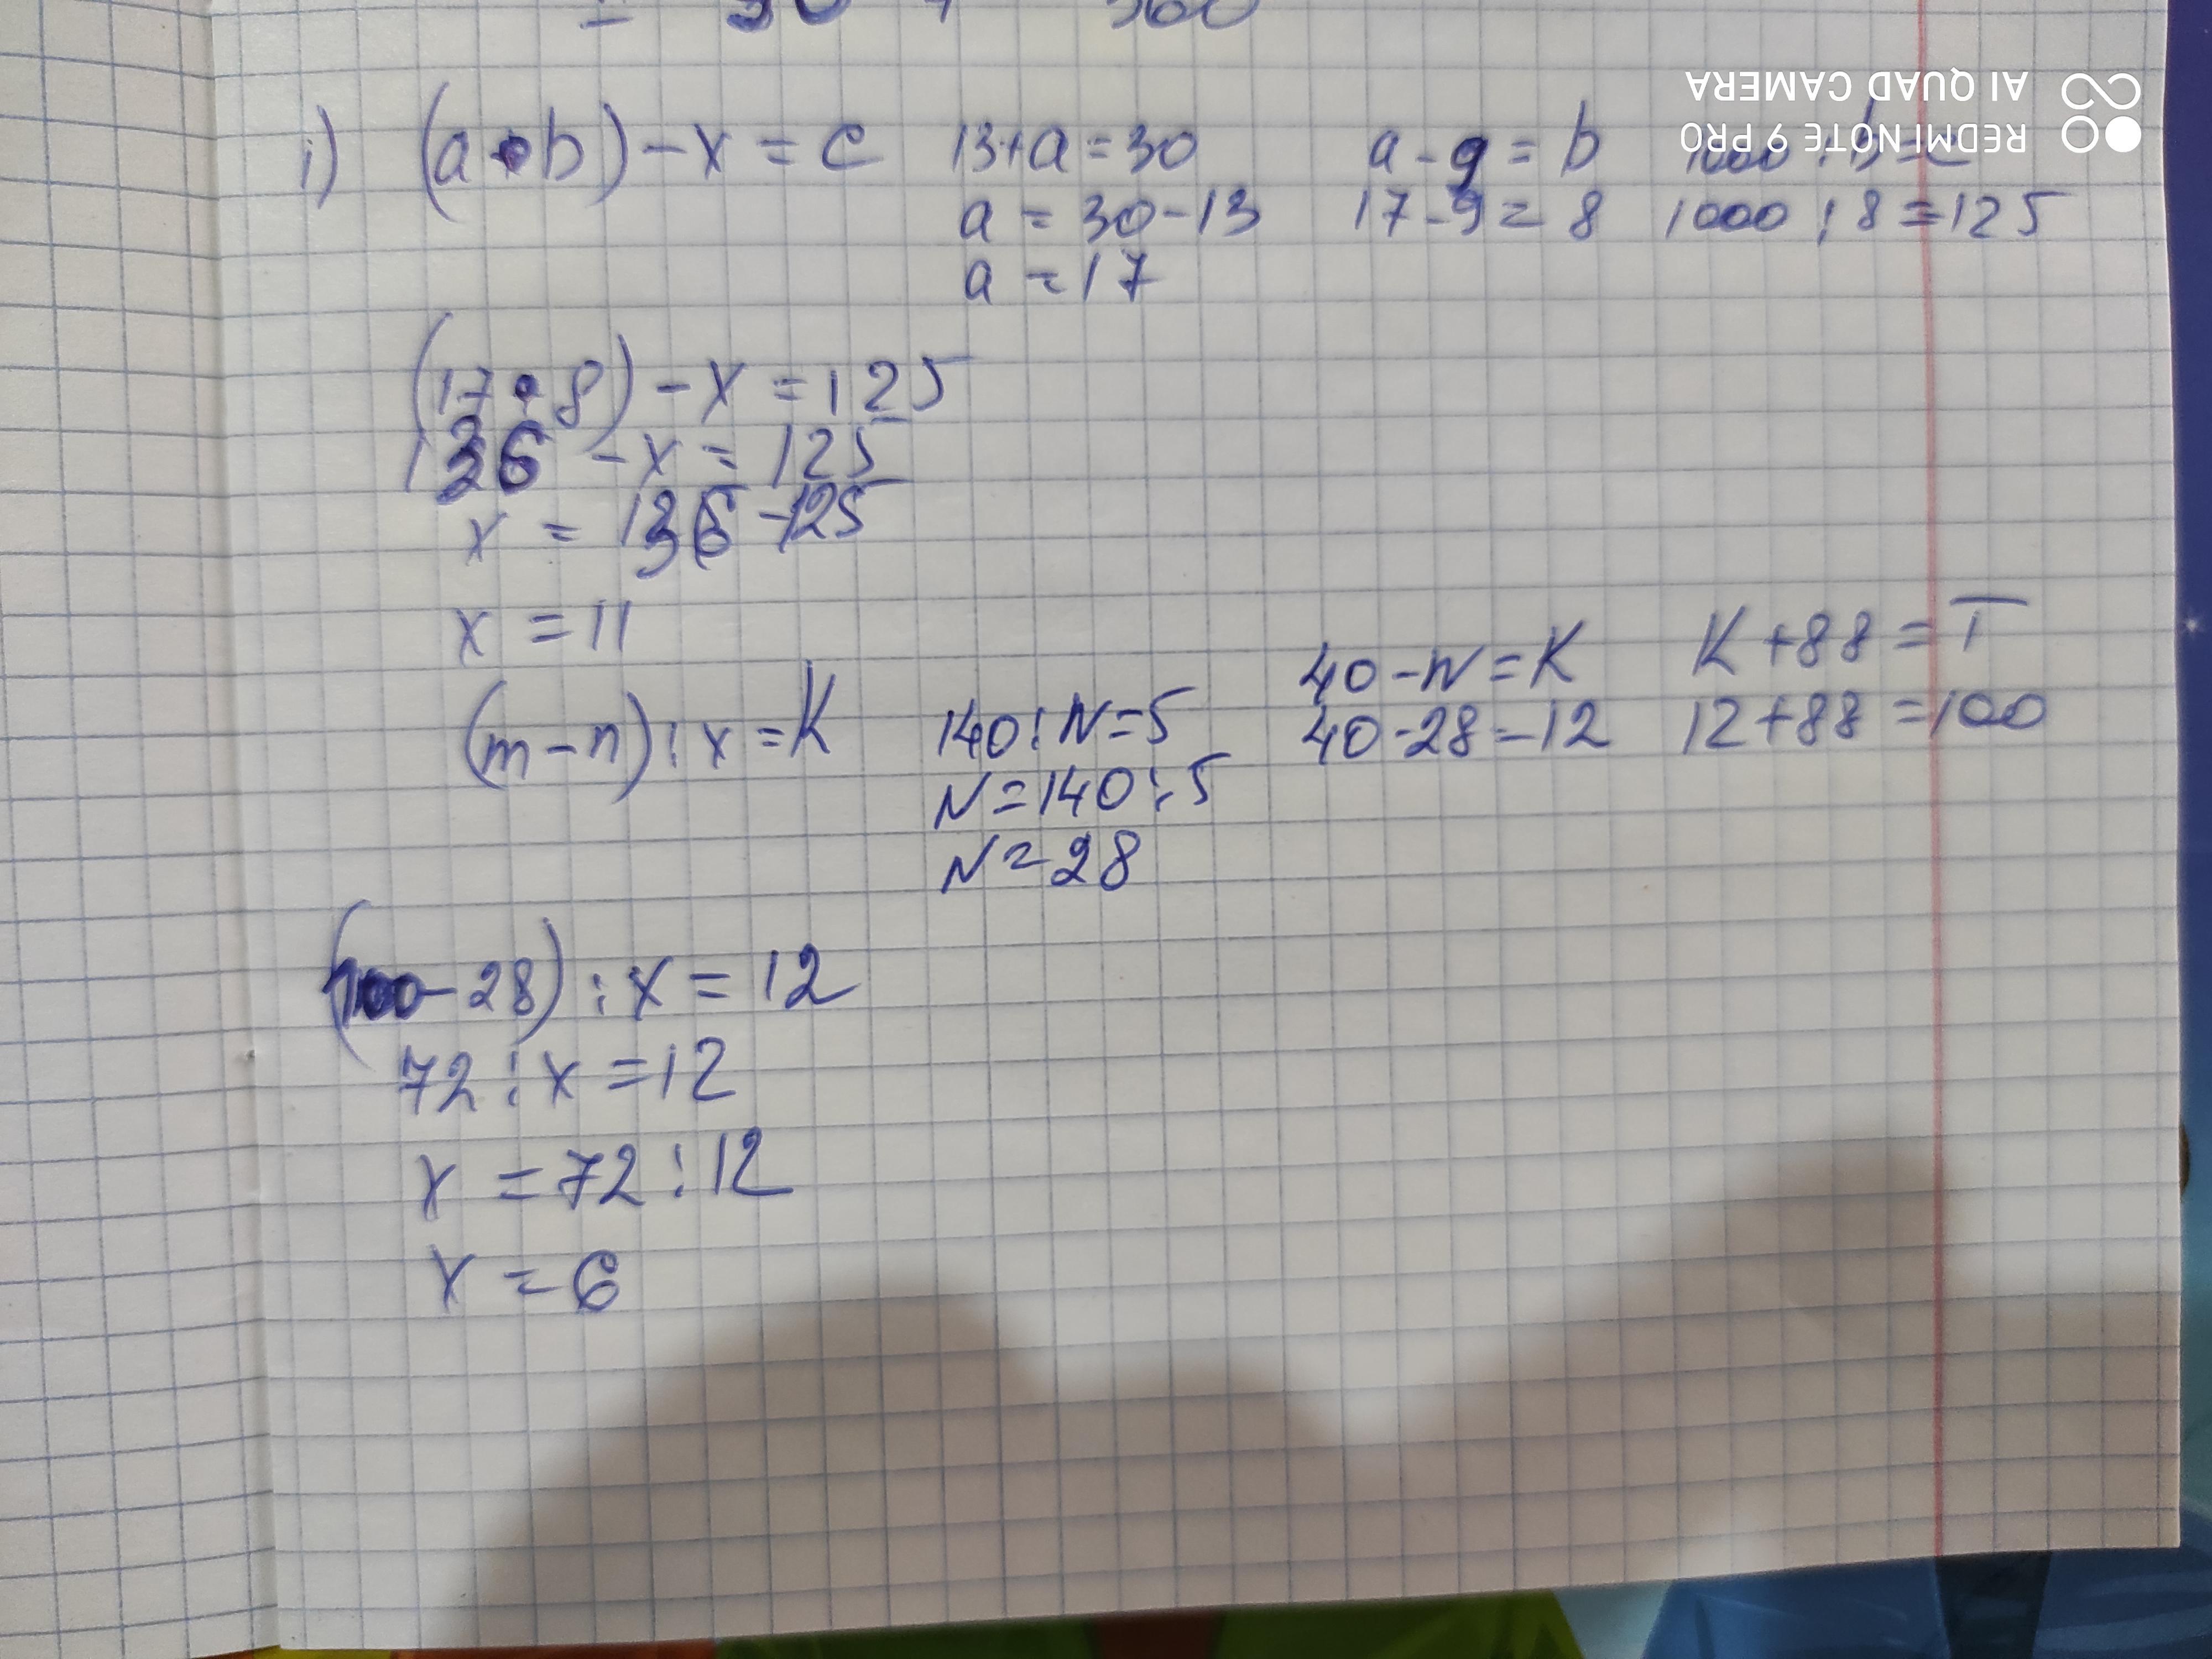 i) (a • b) - x = c 13+a=30 a - 9 = b 1000 : b = c
a = 30-13 17-9= 8 1000 : 8 = 125
a = 17
(17•8) - x = 125
136 - x = 125
x = 136 - 125
x = 11
40 - N = K K + 88 = T
(m - n) : x = K 140 : N = 5 40 - 28 = 12 12 + 88 = 100
N = 140 : 5
N = 28
(100 - 28) : x = 12
72 : x = 12
x = 72 : 12
x = 6
REDMI NOTE 9 PRO
AI QUAD CAMERA